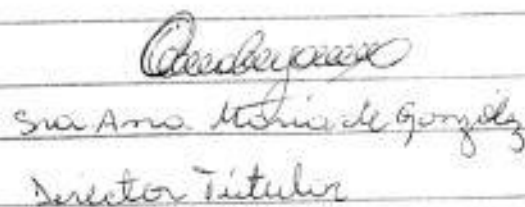 Sra Ana María de González
Director Titular